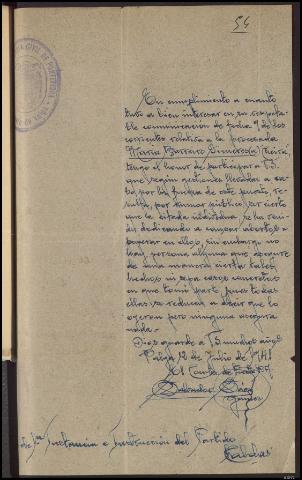 54
En cumplimiento a cuanto
tuvo a bien interesar en su respeta-
ble comunicación de fecha 9 de los
corrientes relativa a la procesada
María
tengo el honor de participar a VS.
que según gestiones llevadas a ca-
bo por la fuerza de este puesto, re-
sulta, por rumor público, ser cierto
que la citada individua, se ha veni-
do dedicando a
en ellos, sin embargo no
hay persona alguna que asegure
de una manera cierta tales
hechos ni sepa casos concretos
en que tomó parte, pues todas
ellas se reducen a decir que lo
oyeron pero ninguna asegura
nada.
Dios guarde a VS muchos años
12 de Julio de 1941
El Comte de Puesto
Salvador
de 1ª Instancia e Instrucción del Partido